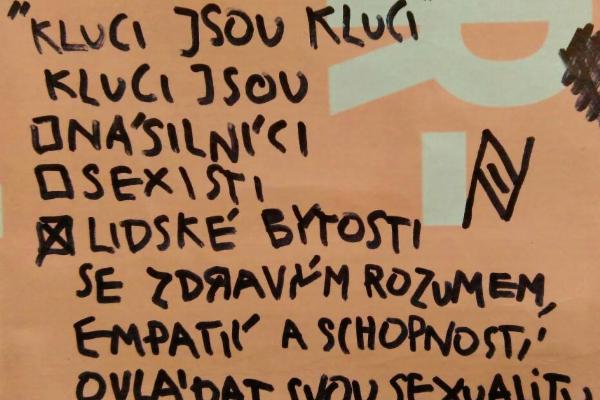 "KLUCI JSOU KLUCI"
KLUCI JSOU
NÁSILNÍCI
SEXISTI
LIDSKÉ BYTOSTI
SE ZDRAVÝM ROZUMEM,
EMPATIÍ A SCHOPNOSTÍ
OVLÁDAT SVOU SEXUALITU